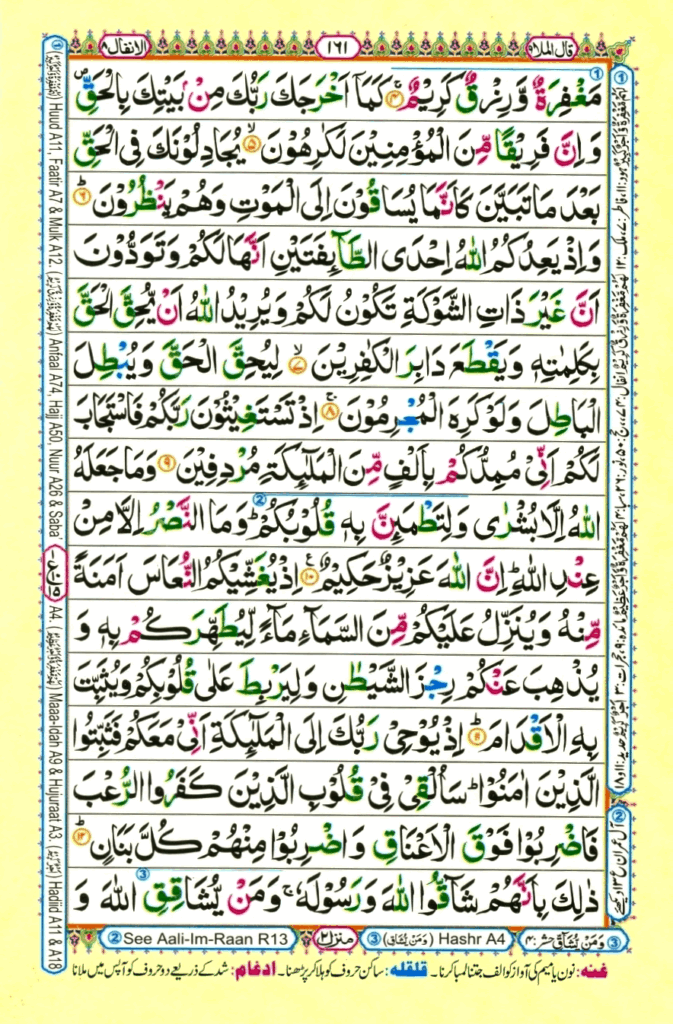 قال الملا ٩
١٦١
الانفال ٨
مَغْفِرَةٌ وَّرِزْقٌ كَرِيْمٌ ۞٤ كَمَاۤ اَخْرَجَكَ رَبُّكَ مِنْۢ بَيْتِكَ بِالْحَقِّ ۪
وَاِنَّ فَرِيْقًا مِّنَ الْمُؤْمِنِيْنَ لَكٰرِهُوْنَ ۙ۞٥ يُجَادِلُوْنَكَ فِى الْحَقِّ
بَعْدَ مَا تَبَيَّنَ كَاَنَّمَا يُسَاقُوْنَ اِلَى الْمَوْتِ وَهُمْ يَنْظُرُوْنَ ؕ۞٦
وَاِذْ يَعِدُكُمُ اللّٰهُ اِحْدَى الطَّآئِفَتَيْنِ اَنَّهَا لَكُمْ وَتَوَدُّوْنَ
اَنَّ غَيْرَ ذَاتِ الشَّوْكَةِ تَكُوْنُ لَكُمْ وَيُرِيْدُ اللّٰهُ اَنْ يُّحِقَّ الْحَقَّ
بِكَلِمٰتِهٖ وَيَقْطَعَ دَابِرَ الْكٰفِرِيْنَ ۙ۞٧ لِيُحِقَّ الْحَقَّ وَيُبْطِلَ
الْبَاطِلَ وَلَوْ كَرِهَ الْمُجْرِمُوْنَ ۚ۞٨ اِذْ تَسْتَغِيْثُوْنَ رَبَّكُمْ فَاسْتَجَابَ
لَكُمْ اَنِّىْ مُمِدُّكُمْ بِاَلْفٍ مِّنَ الْمَلٰٓئِكَةِ مُرْدِفِيْنَ ۞٩ وَمَا جَعَلَهُ
اللّٰهُ اِلَّا بُشْرٰى وَلِتَطْمَئِنَّ بِهٖ قُلُوْبُكُمْ ؕ وَمَا النَّصْرُ اِلَّا مِنْ
عِنْدِ اللّٰهِ ؕ اِنَّ اللّٰهَ عَزِيْزٌ حَكِيْمٌ ۞١٠ اِذْ يُغَشِّيْكُمُ النُّعَاسَ اَمَنَةً
مِّنْهُ وَيُنَزِّلُ عَلَيْكُمْ مِّنَ السَّمَآءِ مَآءً لِّيُطَهِّرَكُمْ بِهٖ وَ
يُذْهِبَ عَنْكُمْ رِجْزَ الشَّيْطٰنِ وَلِيَرْبِطَ عَلٰى قُلُوْبِكُمْ وَيُثَبِّتَ
بِهِ الْاَقْدَامَ ؕ۞١١ اِذْ يُوْحِىْ رَبُّكَ اِلَى الْمَلٰٓئِكَةِ اَنِّىْ مَعَكُمْ فَثَبِّتُوا
الَّذِيْنَ اٰمَنُوْا ؕ سَاُلْقِىْ فِىْ قُلُوْبِ الَّذِيْنَ كَفَرُوا الرُّعْبَ
فَاضْرِبُوْا فَوْقَ الْاَعْنَاقِ وَاضْرِبُوْا مِنْهُمْ كُلَّ بَنَانٍ ؕ۞١٢
ذٰلِكَ بِاَنَّهُمْ شَآقُّوا اللّٰهَ وَرَسُوْلَهٗ ۚ وَمَنْ يُّشَاقِقِ اللّٰهَ وَ
Huud A11, Faatir A7 & Mulk A12. Anfaal A74, Hajj A50, Nuur A26 & Saba' A4. Maaa-Idah A9 & Hujuraat A3. Hadiid A11 & A18
② See Aali-Im-Raan R13
منزل ٢
③ (وَمَنْ يُّشَاقِّ) Hashr A4
③ وَمَنْ يُّشَاقِّ حشر: ٤
غنه: نون یا میم کی آواز کو الف جتنا لمبا کرنا۔ قلقله: ساکن حروف کو ہلا کر پڑھنا۔ ادغام: شد کے ذریعے دو حروف کو آپس میں ملانا